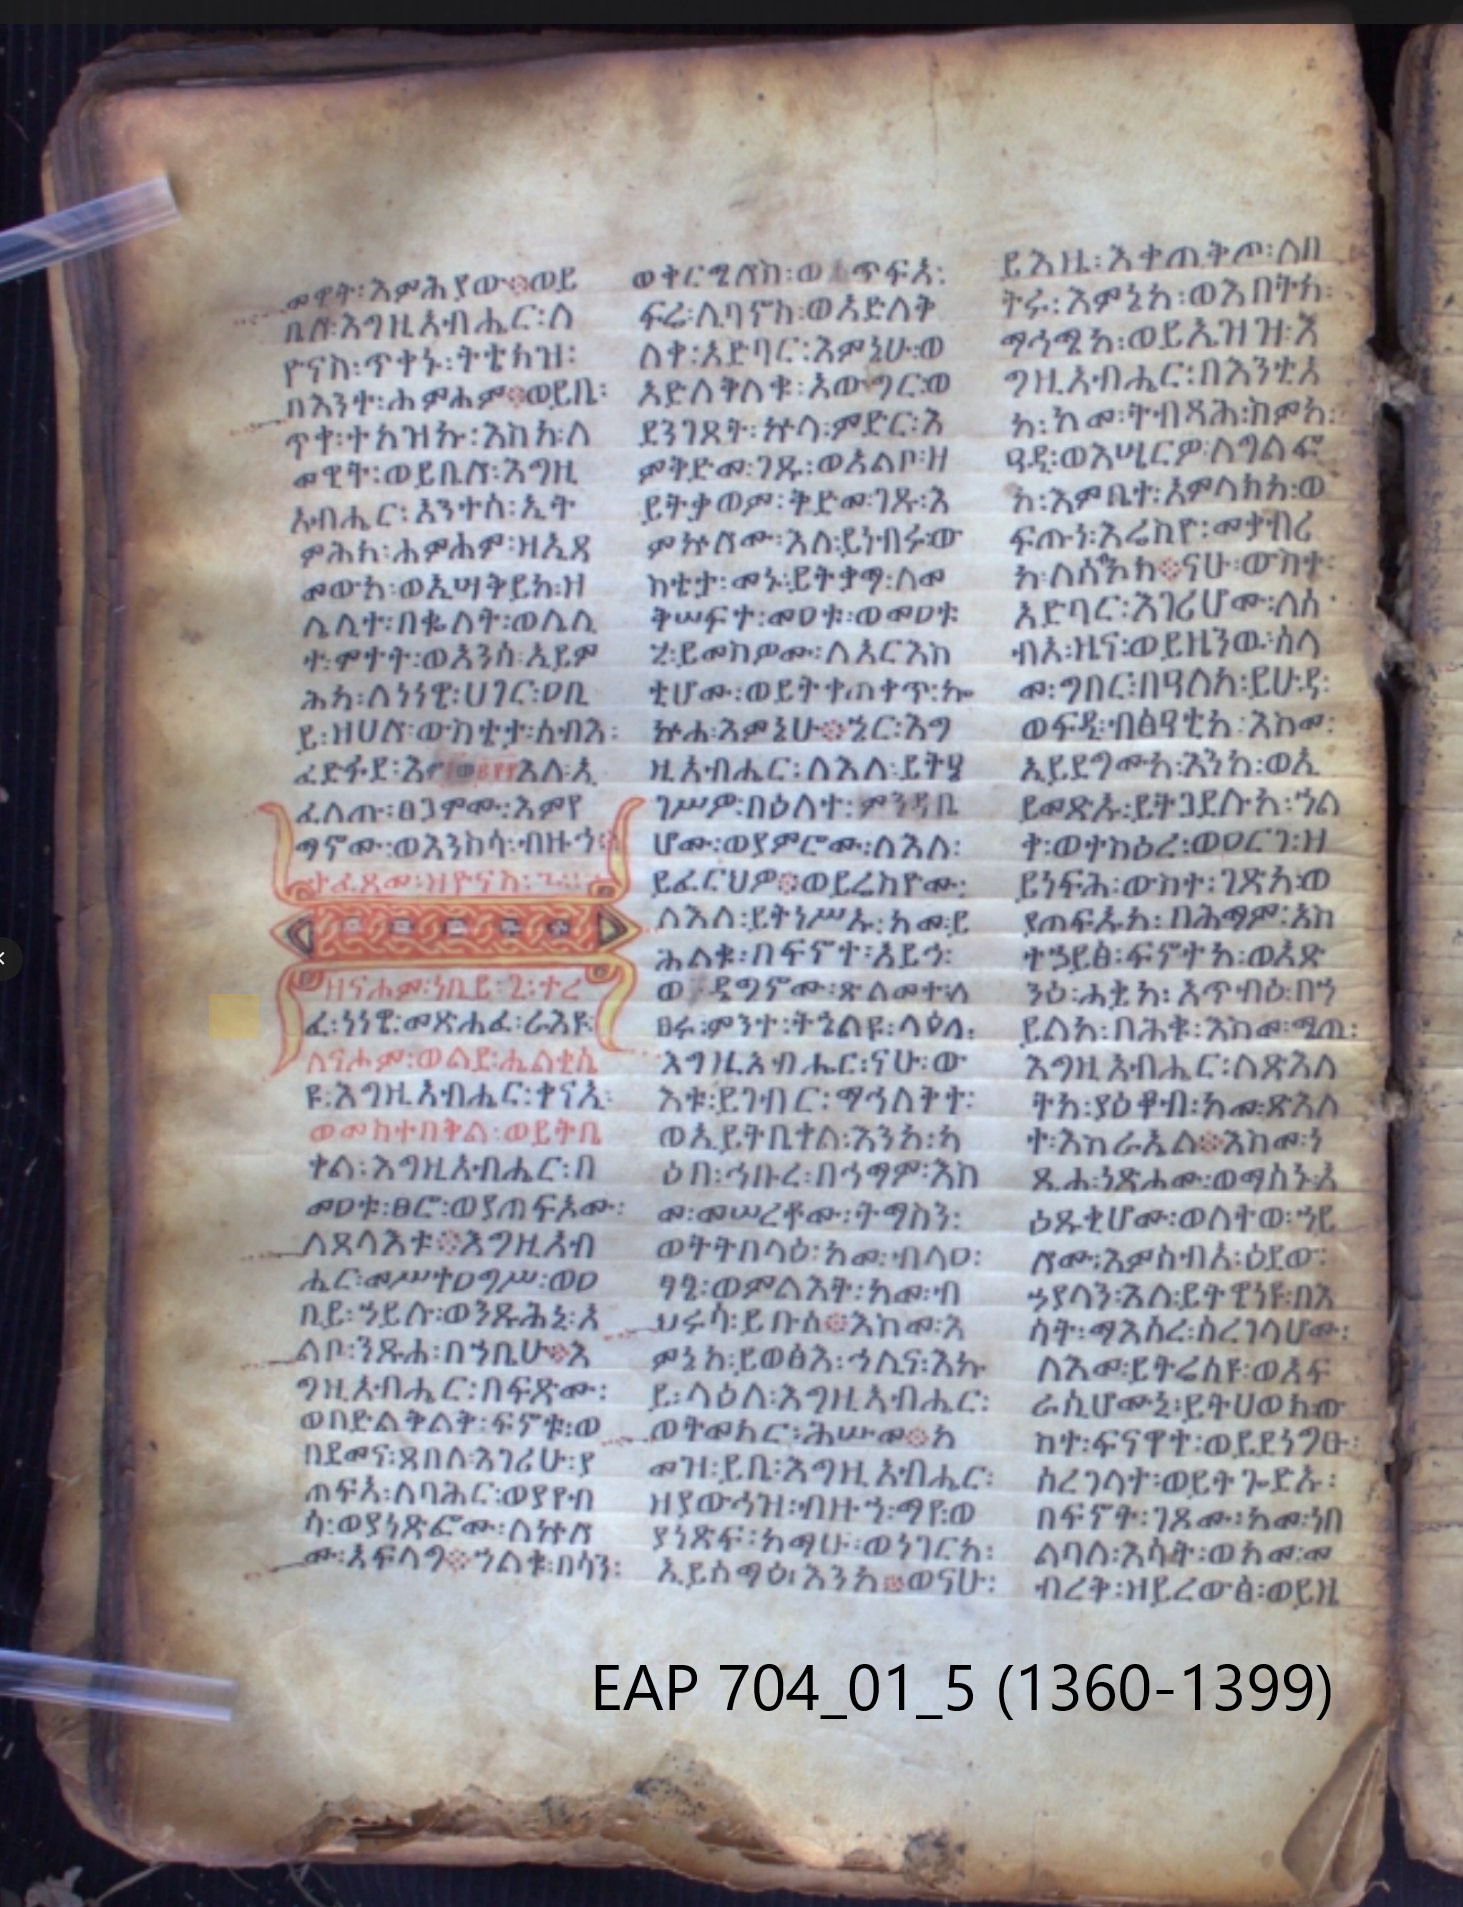 መዊት፡እምሕያው፨ወይ
ቤሎ፡እግዚአብሔር፡ለ
ዮናስ፡ጥቀኑ፡ትቴክዝ፡
በእንተ፡ሐምሐም፨ወይቤ፡
ጥቀ፡ተከዝኩ፡እስከ፡ለ
መዊት፡ወይቤሎ፡እግዚ
አብሔር፡አንተሰ፡ኢት
ምሕከ፡ሐምሐም፡ዘኢጻ
መውከ፡ወኢሣቅይከ፡ዘ
ሌሊተ፡በቈለት፡ወሌሊ
ተ፡ሞተት፡ወአንሰ፡ኢይም
ሕክ፡ለነነዌ፡ሀገር፡ዐቢ
ይ፡ዘሀሎ፡ውስቴታ፡ሰብእ፡
ፈድፋደ፡እም እለ፡ኢ
ፈለጡ፡ፀጋሞሙ፡እምየ
ማኖሙ፡ወእንስሳ፡ብዙኅ፨
ተፈጸመ፡ዘዮናስ፡
ዘናሖም፡ነቢይ፡፯፡ተረ
ፈ፡ነነዌ፡መጽሐፈ፡ራእዩ፡
ለናሖም፡ወልደ፡ሔልቂሲ
ዩ፡እግዚአብሔር፡ቀናኢ፡
ወመስተበቅል፡ወይትቤ
ቀል፡እግዚአብሔር፡በ
መዐቱ፡ፀሮ፡ወያጠፍኦሙ፡
ለጸላእቱ፨እግዚአብ
ሔር፡መሥተዐግሥ፡ወዐ
ቢይ፡ኃይሉ፡ወንጹሕኒ፡አ
ልቦ፡ንጹሐ፡በኀቤሁ፨እ
ግዚአብሔር፡በፍጽሙ፡
ወበድልቅልቅ፡ፍኖቱ፡ወ
በደመና፡ጸበለ፡እገሪሁ፡ያ
ጠፍኣ፡ለባሕር፡ወያየብ
ሳ፡ወያነጽፎሙ፡ለኵሎ
ሙ፡አፍላግ፨ኀልቁ፡በሳን፡
ወቀርሜሎስ፡ወ ጥፍአ፡
ፍሬ፡ሊባኖስ፡ወአድለቅ
ለቀ፡አድባር፡እምኔሁ፡ወ
አድለቅለቁ፡አውግር፡ወ
ደንገጸት፡ኵላ፡ምድር፡እ
ምቅድመ፡ገጹ፡ወአልቦ፡ዘ
ይትቃወም፡ቅድመ፡ገጹ፡እ
ምኵሎሙ፡እለ፡ይነብሩ፡ው
ስቴታ፡መኑ፡ይትቃማ፡ለመ
ቅሠፍተ፡መዐቱ፡ወመዐቱ
ሂ፡ይመስዎሙ፡ለአርእስ
ቲሆሙ፡ወይትቀጠቀጥ፡ኰ
ኵሐ፡እምኔሁ፨ኄር፡እግ
ዚአብሔር፡ለእለ፡ይትዔ
ገሥዎ፡በዕለተ፡ምንዳቤ
ሆሙ፡ወያምሮሙ፡ለእለ፡
ይፈርህዎ፨ወይሬስዮሙ፡
ለእለ፡ይትነሥኡ፡ከመ፡ይ
ሕልቁ፡በፍኖተ፡አይኅ፡
ወ ዴግኖሙ፡ጽልመተ፡ለ
ፀሩ፡ምንተ፡ትኄልዩ፡ላዕለ፡
እግዚአብሔር፡ናሁ፡ው
እቱ፡ይገብር፡ማኅለቅተ፡
ወኢይትቤቀል፡እንከ፡ካ
ዕበ፡ኅቡረ፡በኅማም፡እስ
መ፡መሠረቶሙ፡ትማስን፡
ወትትበላዕ፡ከመ፡ብላዐ፡
ፃፄ፡ወምልእት፡ከመ፡ብ
ህሩሳ፡ይቡስ፨እስመ፡እ
ምኔከ፡ይወፅእ፡ኅሊና፡እኩ
ይ፡ላዕለ፡እግዚአብሔር፡
ወትመክር፡ሕሡመ፨ከ
መዝ፡ይቤ፡እግዚአብሔር፡
ዘያውኅዝ፡ብዙኀ፡ማየ፡ወ
ያነጽፍ፡ከማሁ፡ወነገርከ፡
ኢይሰማዕ፡እንከ፨ወናሁ፡
ይእዜ፡እቀጠቅጦ፡ለበ
ትሩ፡እምኔከ፡ወእበትክ፡
ማኅሜከ፡ወይኤዝዝ፡እ
ግዚአብሔር፡በእንቲአ
ከ፡ከመ፡ትብጻሕ፡ስምከ፡
ዓዲ፡ወእሤርዎ፡ለግልፎ
ከ፡እምቤተ፡አምላክከ፡ወ
ፍጡነ፡እሬስዮ፡መቃብሪ
ከ፡ለሰኰክ፨ናሁ፡ውስተ፡
አድባር፡እገሪሆሙ፡ለሰ
ብአ፡ዜና፡ወይዜንዉ፡ሰላ
መ፡ግበር፡በዓለከ፡ይሁዳ፡
ወፍዲ፡ብፅዓቲከ፡እስመ፡
ኢይደግሙከ፡እንከ፡ወኢ
ይመጽኡ፡ይትጋደሉከ፡ኀል
ቀ፡ወተስዕረ፡ወዐርገ፡ዘ
ይነፍሕ፡ውስተ፡ገጽከ፡ወ
ያጠፍኡከ፡በሕማም፡እስ
ተኃይፅ፡ፍኖተከ፡ወአጽ
ንዕ፡ሐቌከ፡አጥብዕ፡በኀ
ይልከ፡በሕቁ፡እስመ፡ሜጠ፡
እግዚአብሔር፡ለጽእለ
ትከ፡ያዕቆብ፡ከመ፡ጽእለ
ተ፡እስራኤል፨እስመ፡ነ
ጺሐ፡ነጽሐሙ፡ወማሰኑ፡አ
ዕጹቂሆሙ፡ወሰተወ፡ኀይ
ሎሙ፡እምሰብአ፡ዕደው፡
ኃያላን፡እለ፡ይትዋነዩ፡በእ
ሳት፡ማእሰረ፡ሰረገላሆሙ፡
ለአመ፡ይትሬሰዩ፡ወአፍ
ራሲሆሙኒ፡ይትሀወኩ፡ው
ስተ፡ፍናዋት፡ወይደነግፁ፡
ሰረገላት፡ወይትጐድኡ፡
በፍኖት፡ገጾሙ፡ከመ፡ነበ
ልባለ፡እሳት፡ወከመ፡መ
ብረቅ፡ዘይረውፅ፡ወይዜ
EAP 704_01_5 (1360-1399)